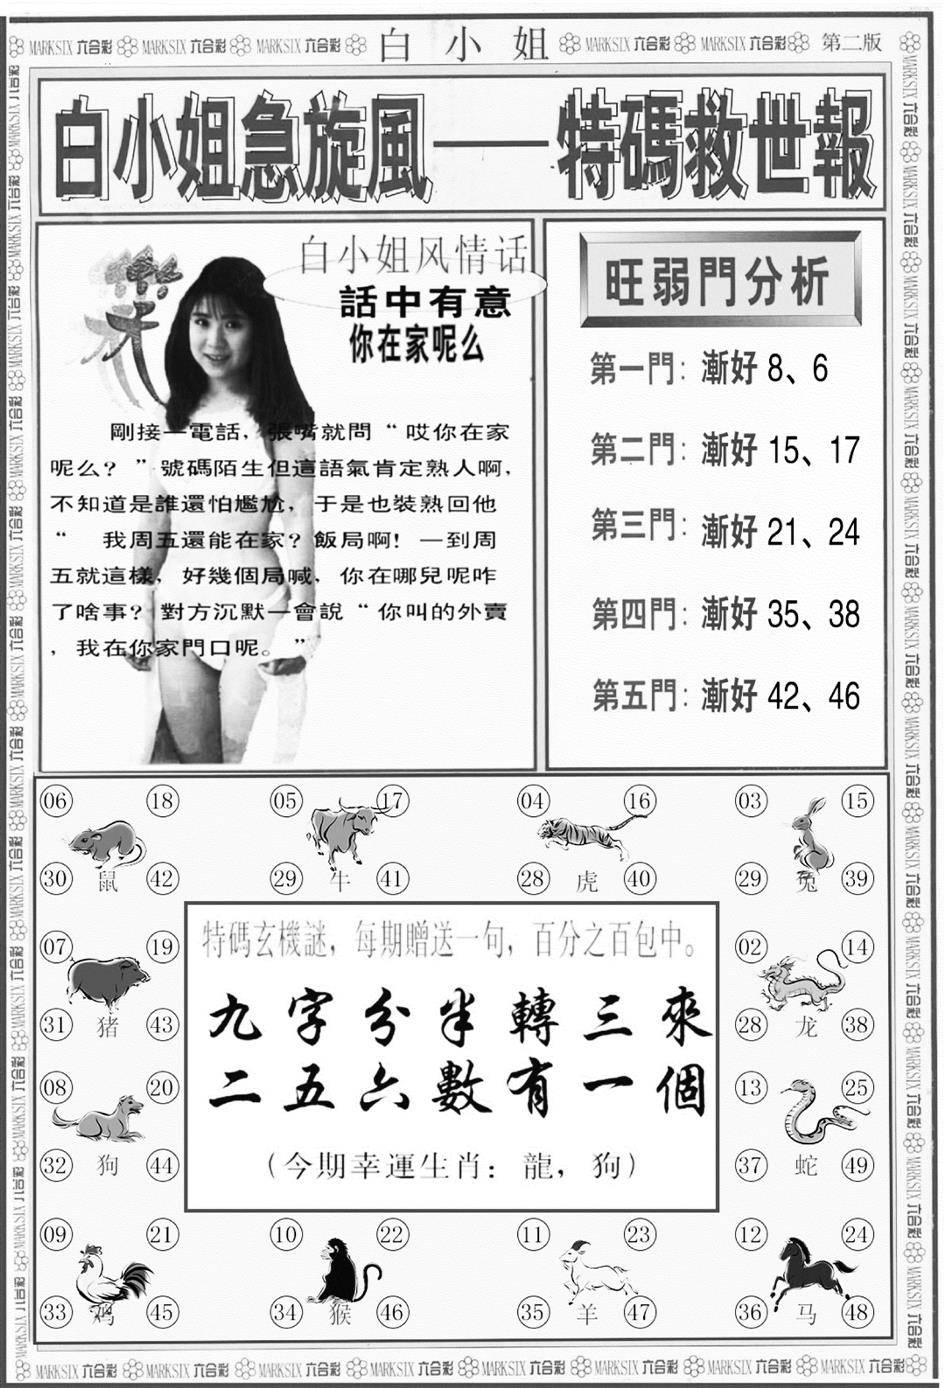 MARKSIX 六合彩 MARKSIX 六合彩 MARKSIX 六合彩 白小姐 MARKSIX 六合彩 MARKSIX 六合彩 第二版
白小姐急旋風——特碼救世報
白小姐风情话
話中有意
你在家呢么
樂
剛接一電話，張嘴就問“哎你在家
呢么？”號碼陌生但這語氣肯定熟人啊，
不知道是誰還怕尷尬，于是也裝熟回他
“ 我周五還能在家？飯局啊！一到周
五就這樣，好幾個局喊，你在哪兒呢咋
了啥事？對方沉默一會說“你叫的外賣
，我在你家門口呢。”
旺弱門分析
第一門：漸好 8、6
第二門：漸好 15、17
第三門：漸好 21、24
第四門：漸好 35、38
第五門：漸好 42、46
06 18 05 17 04 16 03 15
30 鼠 42 29 牛 41 28 虎 40 29 兔 39
特碼玄機謎，每期贈送一句，百分之百包中。
07 19 02 14
九字分半轉三來
31 猪 43 28 龙 38
二五六數有一個
08 20 13 25
（今期幸運生肖：龍，狗）
32 狗 44 37 蛇 49
09 21 10 22 11 23 12 24
33 鸡 45 34 猴 46 35 羊 47 36 马 48
MARKSIX 六合彩 MARKSIX 六合彩 MARKSIX 六合彩 MARKSIX 六合彩 MARKSIX 六合彩 MARKSIX 六合彩 MARKSIX 六合彩 MARKSIX 六合彩